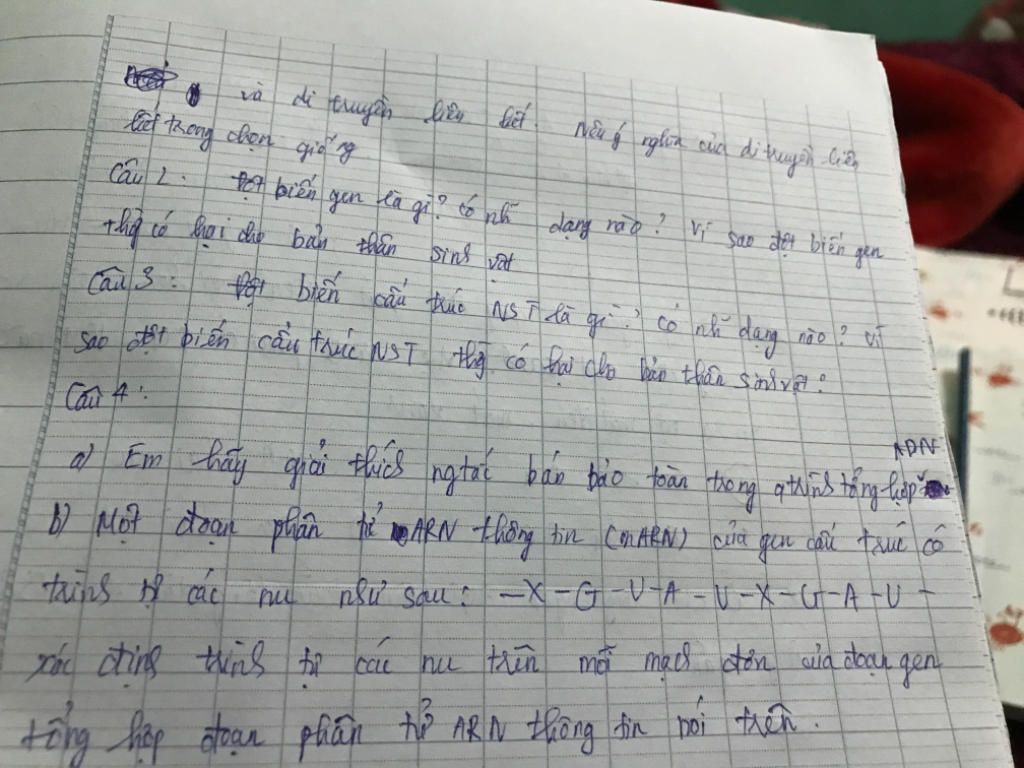 và di truyền liên kết. Nêu ý nghĩa của di truyền liên
kết trong chọn giống
Câu 2: Đột biến gen là gì? có nh~ dạng nào? Vì sao đột biến gen
thg có hại cho bản thân sinh vật
Câu 3: Đột biến cấu trúc NST là gì? có nh~ dạng nào? vì
sao đột biến cấu trúc NST thg có hại cho bản thân sinh vật?
Câu 4:
a) Em hãy giải thích ngtắc bán bảo toàn trong qtrình tổng hợp ADN
b) Một đoạn phân tử ARN thông tin (mARN) của gen cấu trúc có
trình tự các nu như sau: -X-G-U-A-U-X-G-A-U-
xác định trình tự các nu trên mỗi mạch đơn của đoạn gen
tổng hợp đoạn phân tử ARN thông tin nói trên.